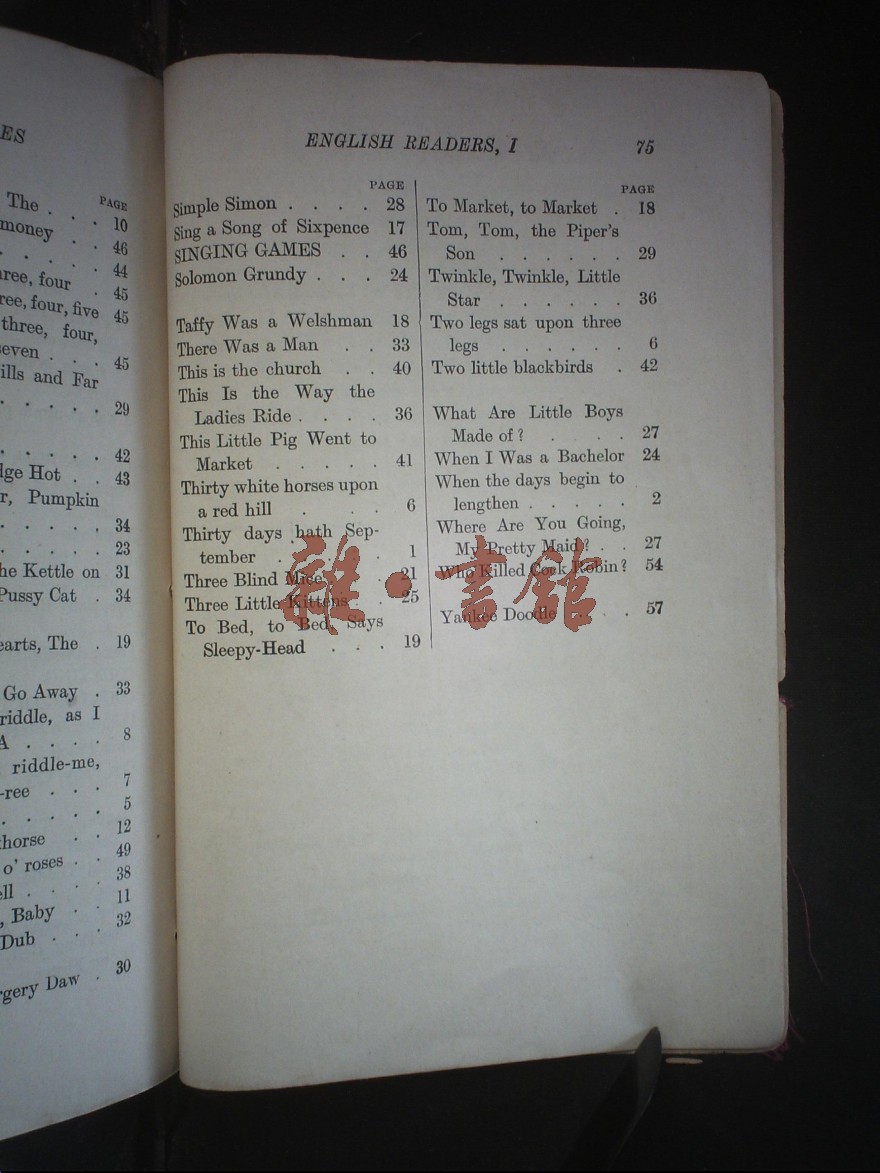 ES
The . . . 10
PAGE
money . . 46
. . . . . 44
ree, four . 45
ree, four, five 45
three, four,
seven . . . 45
ills and Far
. . . . . 29
. . . . . 42
dge Hot . . 43
r, Pumpkin
. . . . . 34
. . . . . 23
he Kettle on 31
Pussy Cat . 34
earts, The . 19
Go Away . 33
riddle, as I
A . . . . 8
riddle-me,
-ree . . . 7
. . . . . 5
horse . . 12
o' roses . . 49
ell . . . . 38
, Baby . . 11
Dub . . . 32
rgery Daw . 30
ENGLISH READERS, I 75
PAGE
Simple Simon . . . . 28
Sing a Song of Sixpence 17
SINGING GAMES . . 46
Solomon Grundy . . . 24
Taffy Was a Welshman 18
There Was a Man . . 33
This is the church . . 40
This Is the Way the
Ladies Ride . . . . 36
This Little Pig Went to
Market . . . . . 41
Thirty white horses upon
a red hill . . . 6
Thirty days hath Sep-
tember . . . . . 1
Three Blind Mice . . 21
Three Little Kittens . . 25
To Bed, to Bed, Says
Sleepy-Head . . . 19
PAGE
To Market, to Market . 18
Tom, Tom, the Piper's
Son . . . . . . 29
Twinkle, Twinkle, Little
Star . . . . . . 36
Two legs sat upon three
legs . . . . . . 6
Two little blackbirds . 42
What Are Little Boys
Made of ? . . . . 27
When I Was a Bachelor 24
When the days begin to
lengthen . . . . . 2
Where Are You Going,
My Pretty Maid ? . . 27
Who Killed Cock Robin ? 54
Yankee Doodle . . . 57
雜·書館